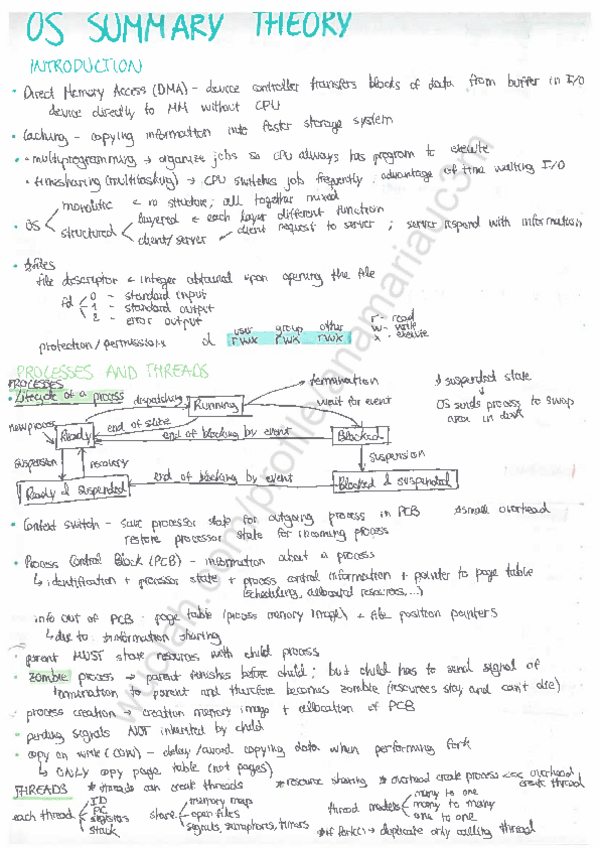 OS SUMMARY THEORY
INTRODUCTION
• Direct Memory Access (DMA) – device controller transfers blocks of data from buffer in I/O
device directly to MM without CPU
• Caching – copying information into faster storage system
• • multiprogramming → organize jobs so CPU always has program to execute
• timesharing (multitasking) → CPU switches job frequently. advantage of time waiting I/O
• OS
monolitic ← no structure; all together mixed
structured
layered ← each layer different function
client/server
client request to server; server respond with information
• files
file descriptor ← integer obtained upon opening the file
fd
0 – standard input
1 – standard output
2 – error output
protection/permissions
d
user group other
rwx rwx rwx
r – read
w – write
x – execute
PROCESSES AND THREADS
PROCESSES
• Lifecycle of a process
dispatching
Running
termination
wait for event
suspended state
OS sends process to swap
area in disk
new process
Ready
end of slice
end of blocking by event
Blocked
suspension
recovery
suspension
Ready & suspended
end of blocking by event
Blocked & suspended
• Context switch – save processor state for outgoing process in PCB *small overhead
restore processor state for incoming process
• Process Control Block (PCB) – information about a process
↳ identification + processor state + process control information + pointer to page table
(scheduling, allocated resources,...)
info out of PCB: page table (process memory image) + file position pointers
↳ due to information sharing
• parent MUST share resources with child process
• zombie process → parent finishes before child; but child has to send signal of
termination to parent and therefore becomes zombie (resources stay and can't die)
• process creation → creation memory image + allocation of PCB
• pending signals NOT inherited by child
• copy on write (COW) – delay/avoid copying data when performing fork
↳ ONLY copy page table (not pages)
THREADS * threads can create threads * resource sharing * overhead create process <<< overhead
create thread
each thread
ID
PC
registers
stack
share
memory map
open files
signals, semaphores, timers
thread models
many to one
many to many
one to one
*if fork() → duplicate only calling thread
wuolah.com/profile/anamariauc3m